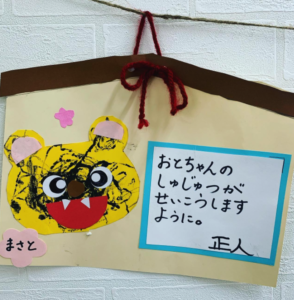 おとちゃんの
しゅじゅつが
せいこうします
ように。
正人
まさと